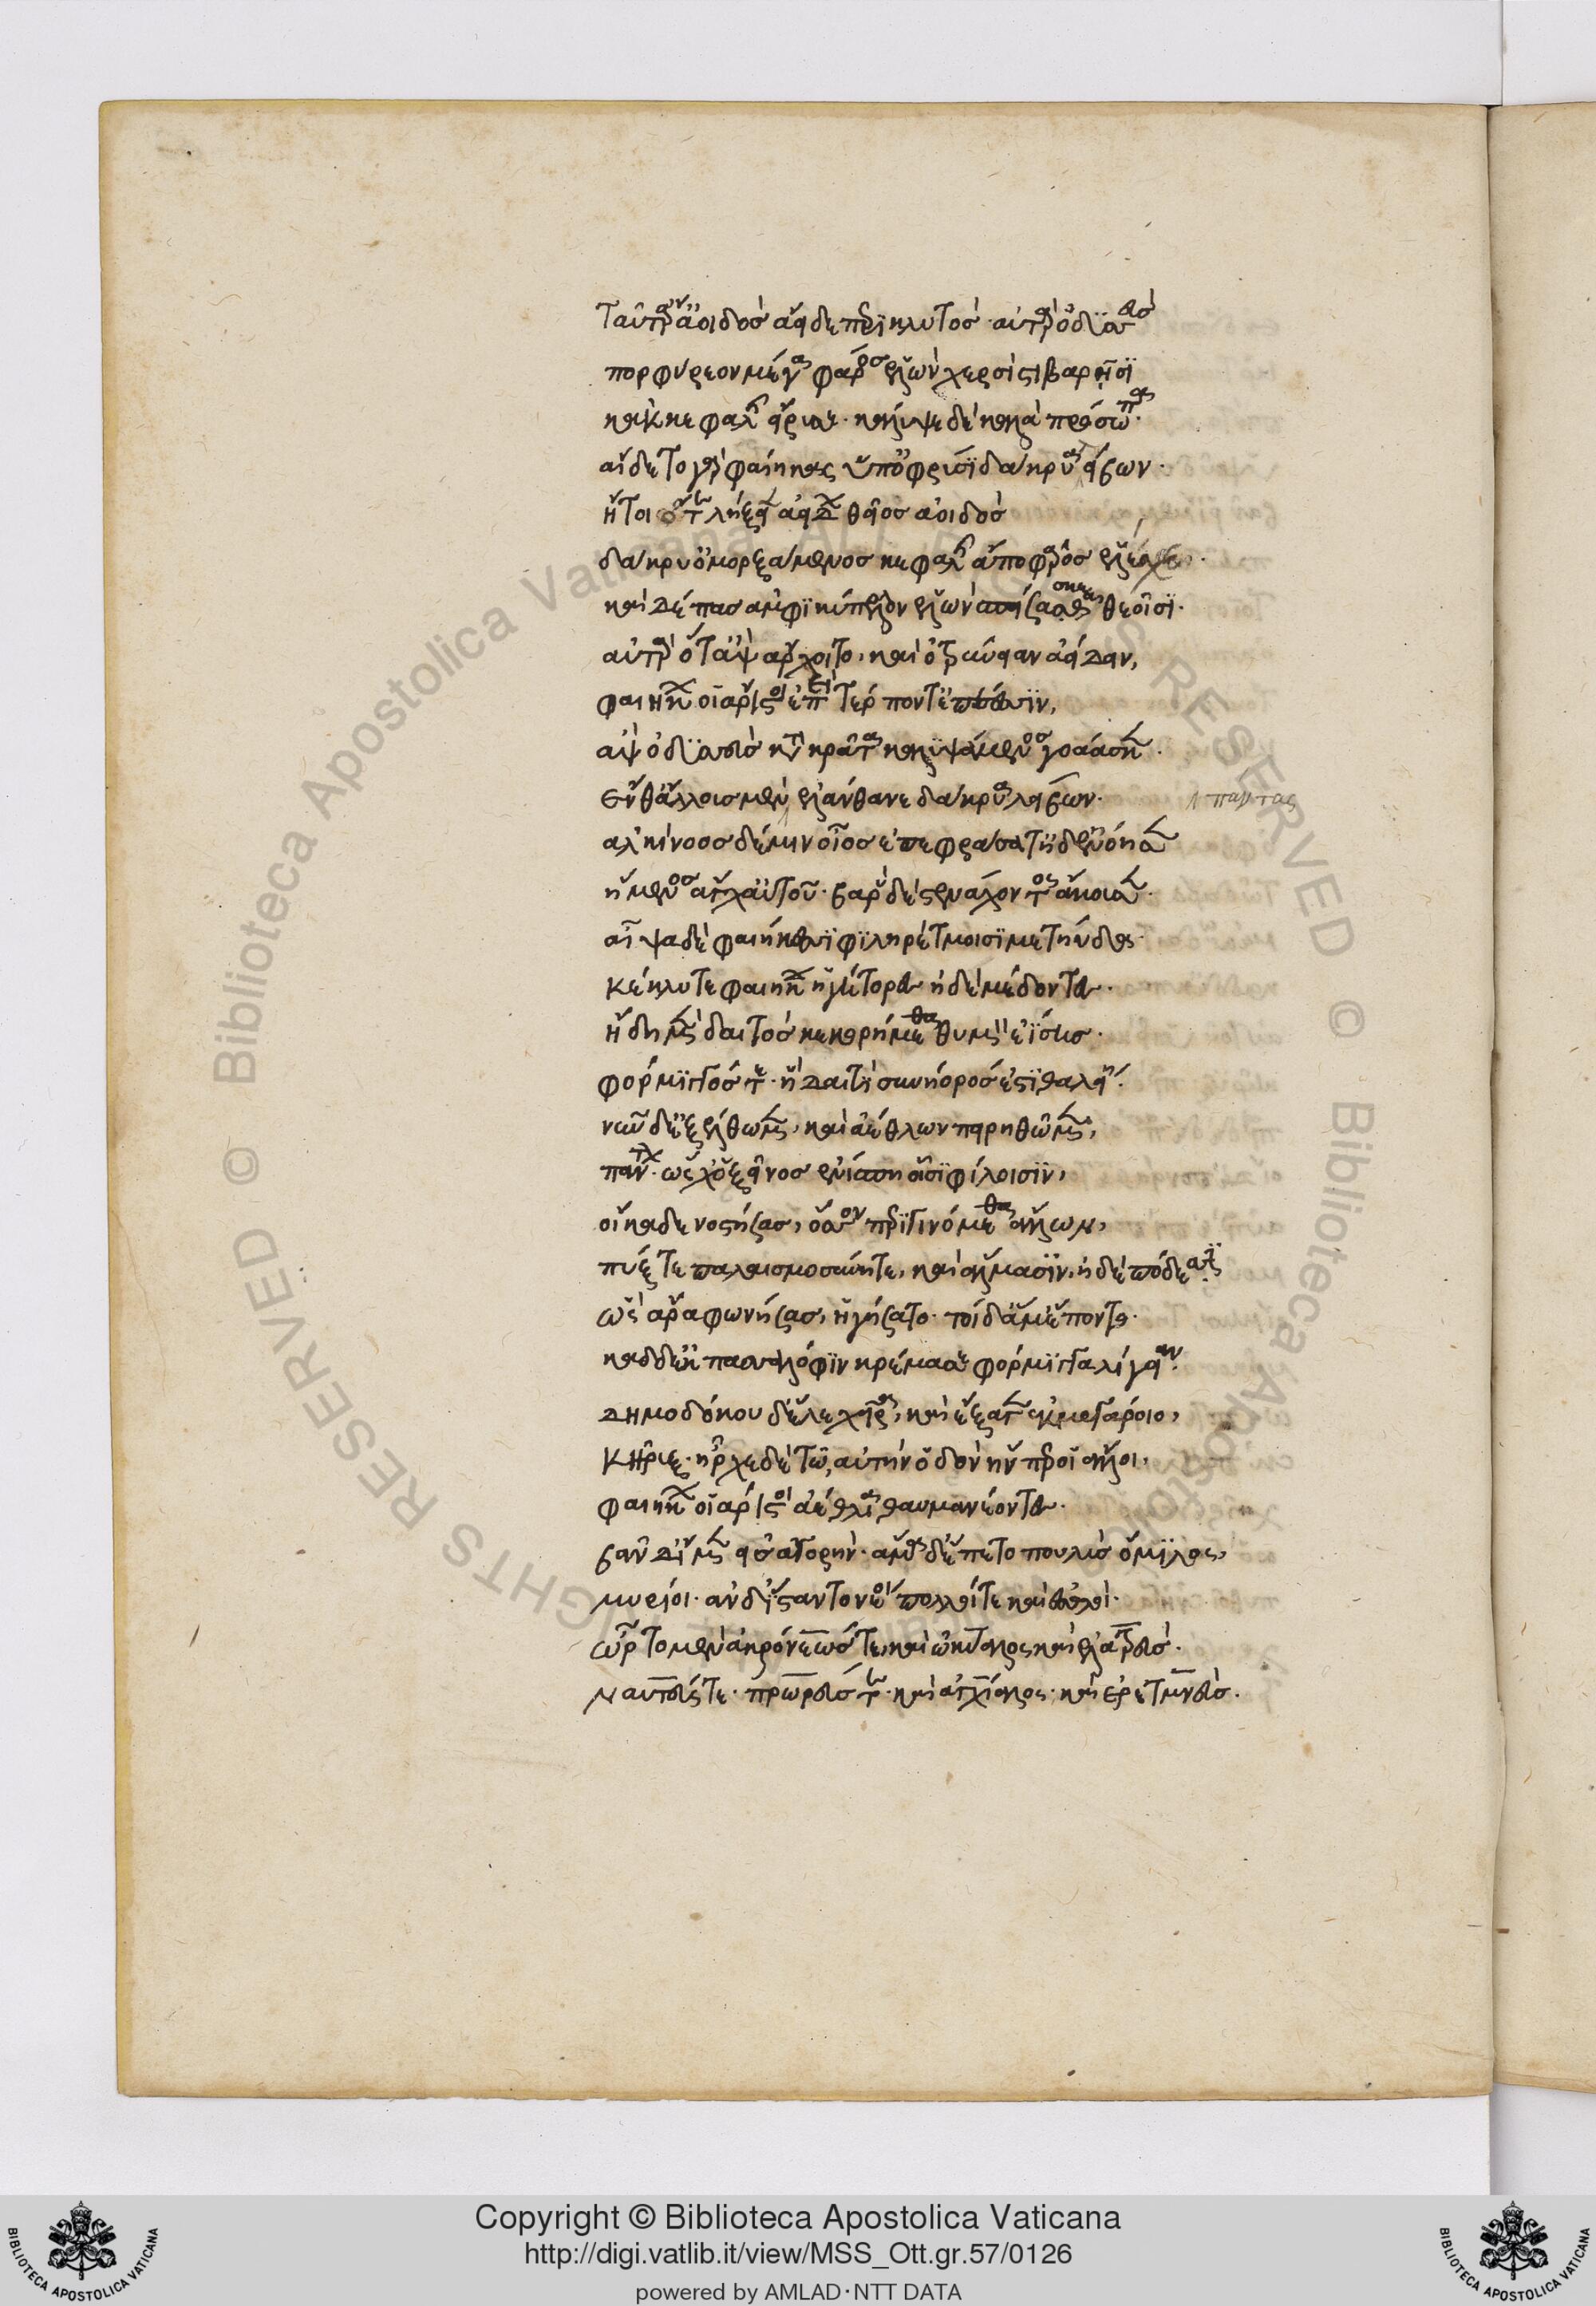 ταῦτ' ἄρ' ἀοιδὸς ἄειδε περικλυτός· αὐτὰρ ὀδυσσεὺς
πορφύρεον μέγα φᾶρος ἑλὼν χερσὶ στιβαρῇσι
κὰκ κεφαλῆς εἴρυσσε· κάλυψε δὲ καλὰ πρόσωπα·
αἴδετο γὰρ φαίηκας ὑπ' ὀφρύσι δάκρυα λείβων·
ἤτοι ὅτε λήξειεν ἀείδων θεῖος ἀοιδὸς
δάκρυ' ὀμορξάμενος κεφαλῆς ἄπο φᾶρος ἕλεσκε·
καὶ δέπας ἀμφικύπελλον ἑλὼν σπείσασκε θεοῖσι·
αὐτὰρ ὅτ' ἂψ ἄρχοιτο, καὶ ὀτρύνειαν ἀείδειν,
φαιήκων οἱ ἄριστοι ἐπεὶ τέρποντ' ἐπέεσσιν,
ἂψ ὀδυσεὺς κατὰ κρᾶτα καλυψάμενος γοάασκεν·
ἔνθ' ἄλλους μὲν ἐλάνθανε δάκρυα λείβων·
πάντας
ἀλκίνοος δέ μιν οἶος ἐπεφράσατ' ἠδ' ἐνόησεν
ἥμενος ἄγχ' αὐτοῦ· βαρὺ δὲ στενάχοντος ἄκουσεν·
αἶψα δὲ φαιήκεσσι φιληρέτμοισι μετηύδα·
κέκλυτε φαιήκων ἡγήτορες ἠδὲ μέδοντες·
ἤδη μὲν δαιτὸς κεκορήμεθα θυμὸν ἐΐσης·
φόρμιγγός τε· ἣ δαιτὶ συνήορός ἐστι θαλείῃ·
νῦν δ' ἐξέλθωμεν, καὶ ἀέθλων πειρηθῶμεν,
πάντων· ὥς χ' ὁ ξεῖνος ἐνίσπῃ οἷσι φίλοισιν,
οἴκαδε νοστήσας, ὅσσον περιγινόμεθ' ἄλλων,
πύξ τε παλαισμοσύνῃ τε, καὶ ἅλμασιν, ἠδὲ πόδεσσιν
ὣς ἄρα φωνήσας, ἡγήσατο· τοὶ δ' ἅμ' ἕποντο·
κὰδ δ' ἐκ πασσαλόφιν κρέμασε φόρμιγγα λίγειαν·
δημοδόκου δ' ἕλε χεῖρα, καὶ ἔξαγεν ἐκ μεγάροιο,
κῆρυξ· ἦρχε δὲ τῷ, αὐτὴν ὁδὸν ἥν περ οἱ ἄλλοι,
φαιήκων οἱ ἄριστοι ἀέθλια θαυμανέοντες·
βὰν δ' ἴμεν εἰς ἀγορήν· ἅμα δ' ἕπετο πουλὺς ὅμιλος,
μυρίοι· ἂν δ' ἵσταντο νέοι πολλοί τε καὶ ἐσθλοί·
ὦρτο μὲν ἀκρόνεώς τε, καὶ ὠκύαλος καὶ ἐλατρεύς·
ναυτεύς τε· πρωρεύς τε· καὶ ἀγχίαλος· καὶ ἐρετμεύς·
Copyright © Biblioteca Apostolica Vaticana
http://digi.vatlib.it/view/MSS_Ott.gr.57/0126
powered by AMLAD·NTT DATA